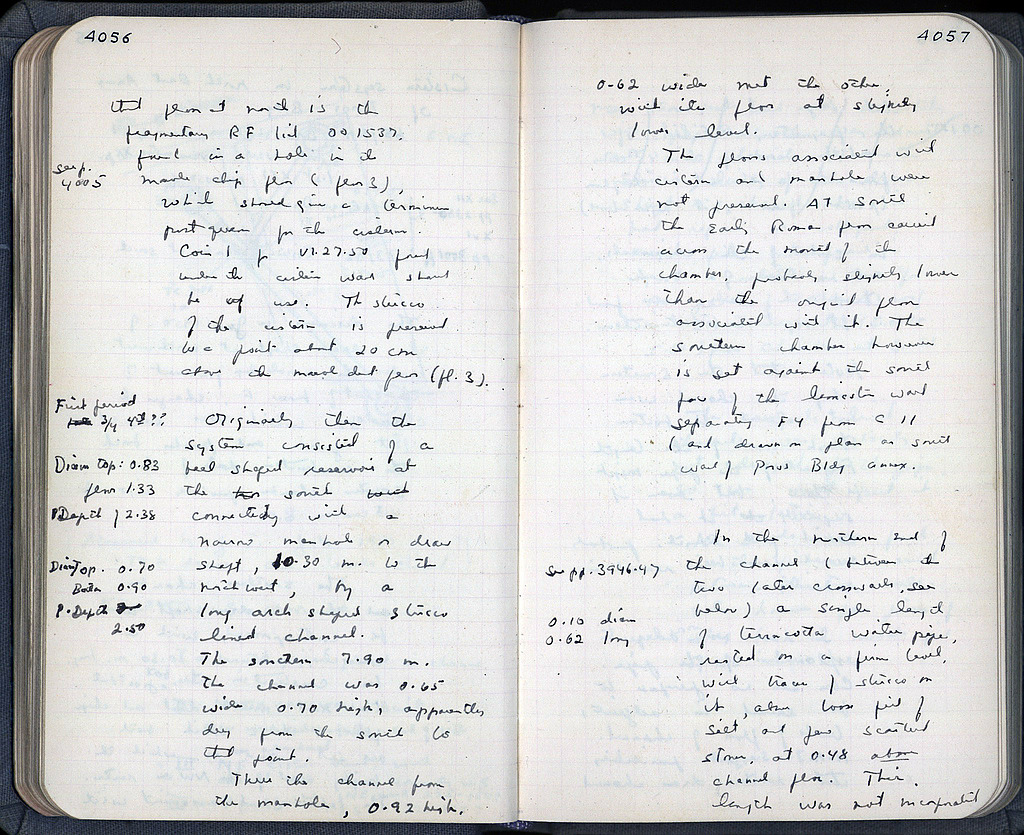 4056
that floor at north is the
fragmentary RF lid 001537.
found in a hole in the
see p.
4005
marble chip floor (floor 3),
which should give a terminus
post quem for the cistern.
Coin 1 for VI.27.50 found
under the cistern was
be of use. The stucco
of the cistern is preserved
to a point about 20 cm
above the marble dust floor (fl. 3).
First period
3/4 4th??
Originally then the
system consisted of a
Diam top: 0.83
bell shaped reservoir at
floor 1.33
the south
P. Depth 2.38
connected with a
narrow manhole or draw
Diam Top. 0.70
shaft, 10.30 m. to the
Bottom 0.90
northwest, by a
P. Depth
2.50
long arch shaped stucco
lined channel.
The southern 7.90 m.
the channel was 0.65
wide 0.70 high, apparently
dug from the south to
that point.
There the channel from
the manhole, 0.92 high,
4057
0.62 wide met the other,
with its floor at slightly
lower level.
The floors associated with
cistern and manhole were
not preserved. At south
the Early Roman floor carried
across the mouth of the
chamber, probably slightly lower
than the original floor
associated with it. The
southern chamber however
is set against the south
face of the limestone wall
separating F4 from C 11
(and drawn on plan as south
wall of Poros Bldg annex.
In the northern end of
See pp. 3946-47
the channel (between the
two later crosswalls, see
below) a single length
0.10 diam
0.62 long
of terracotta water pipe,
rested on a firm level,
with traces of stucco on
it, above loose fill of
silt and few scattered
stones, at 0.48 above
channel floor. This
length was not incorporated